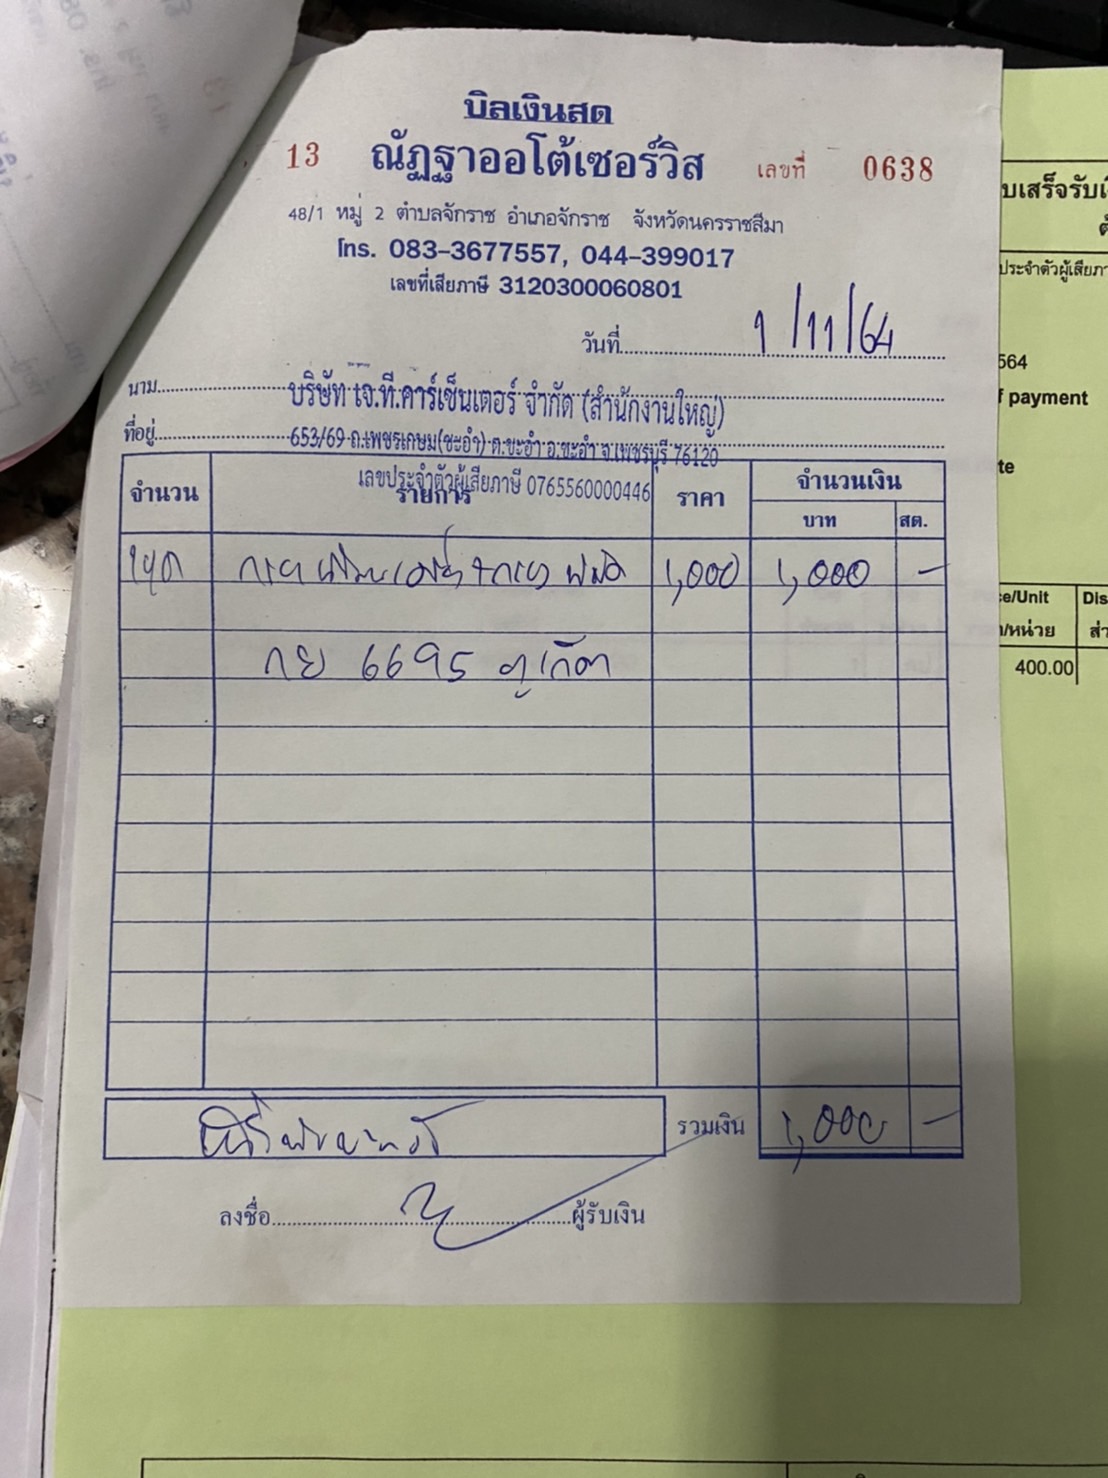 บิลเงินสด
13 ณัฏฐาออโต้เซอร์วิส เลขที่ 0638
48/1 หมู่ 2 ตำบลจักราช อำเภอจักราช จังหวัดนครราชสีมา
โทร. 083-3677557, 044-399017
เลขที่เสียภาษี 3120300060801
วันที่ 1/11/64
นาม บริษัท เจ.ที.คาร์เซ็นเตอร์ จำกัด (สำนักงานใหญ่)
ที่อยู่ 653/69 ถ.เพชรเกษม(ชะอำ) ต.ชะอำ อ.ชะอำ จ.เพชรบุรี 76120
เลขประจำตัวผู้เสียภาษี 0765560000446
จำนวน รายการ ราคา จำนวนเงิน
บาท สต.
1ชุด 1,000 1,000 -
กย 6695 ภูเก็ต
รวมเงิน 1,000 -
หนึ่งพันบาท
ลงชื่อ ผู้รับเงิน
564
payment
e/Unit Dis
/หน่วย
400.00